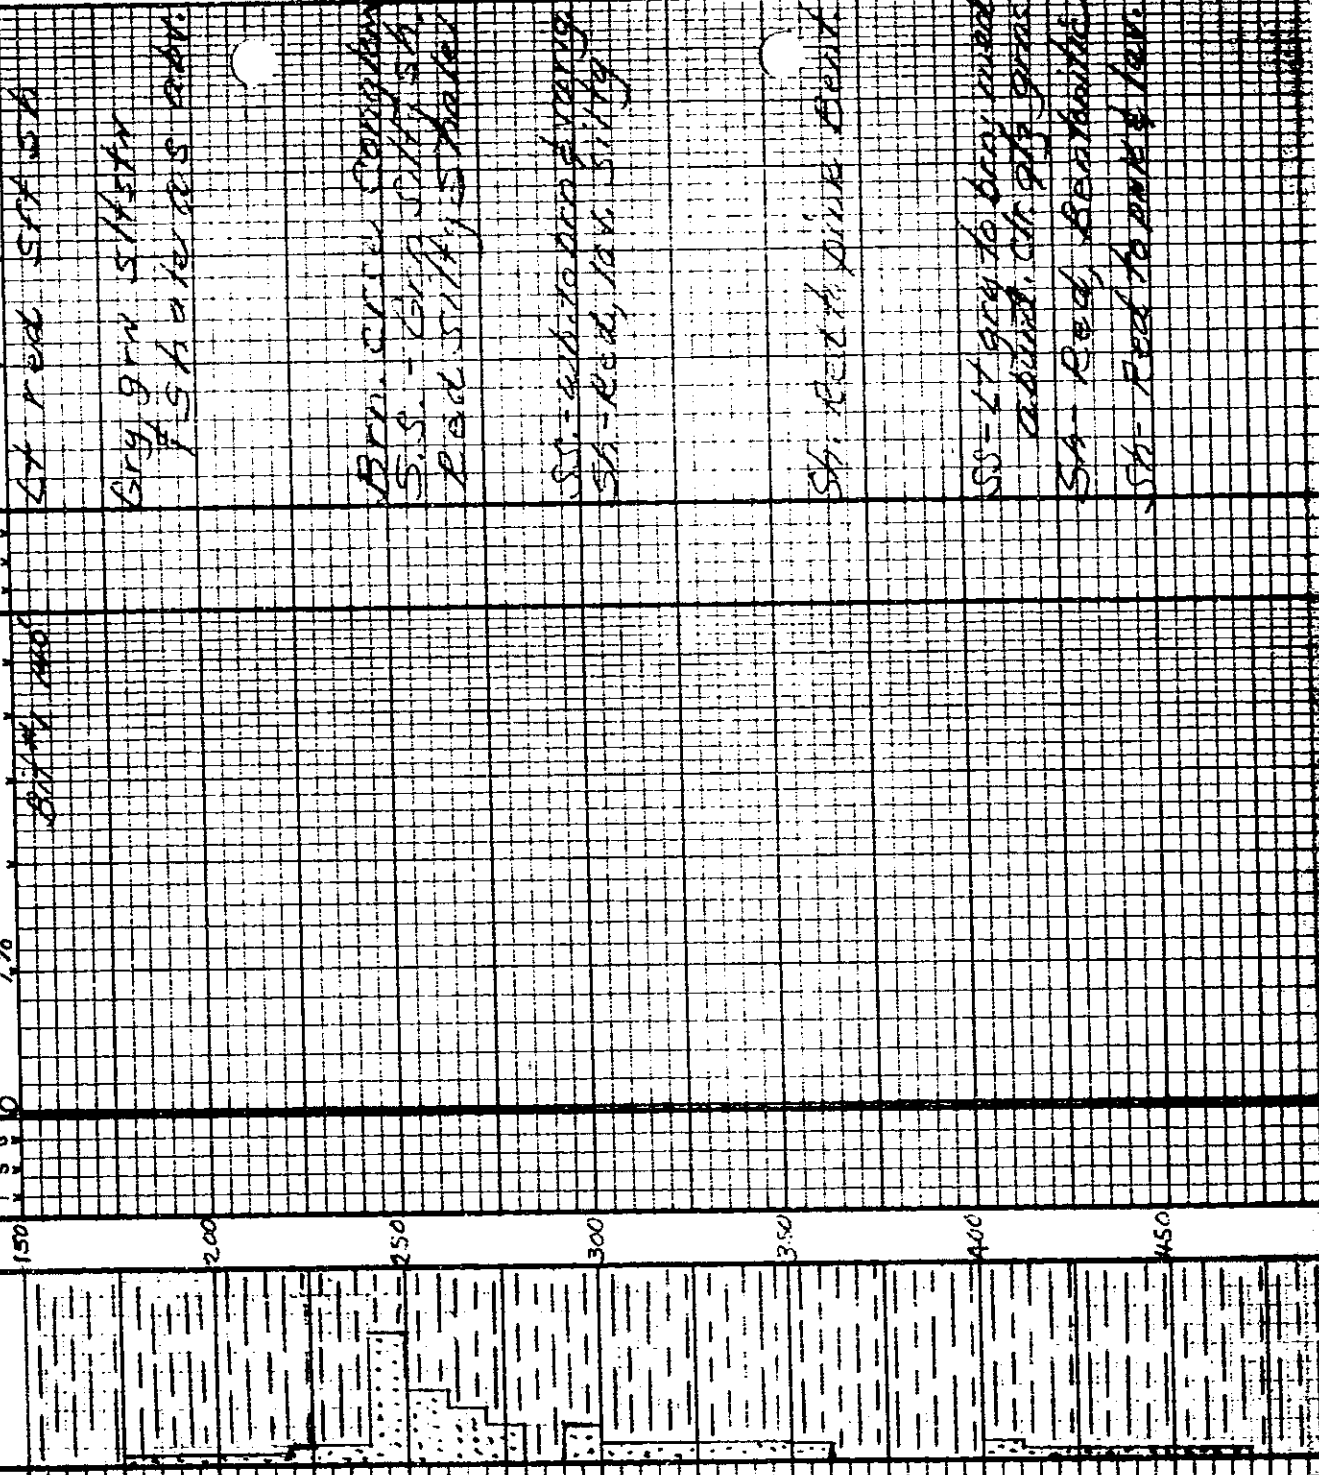 Lt red sft sh
Gry grn siltstn
& shale as abv.
Brn. crse Conglom
S.S. - Grn silty sh.
Red silty Shale
SS. - wh. to orng
Sh - Red, lav. silty
Sh. Red & pink Bent.
SS - Lt gry to brn, med
abund. clr qtz grns
Sh - Red, Bentonitic
Sh - Red to pink & lav.
Bit #1 140'
10
0
150
200
250
300
350
400
450